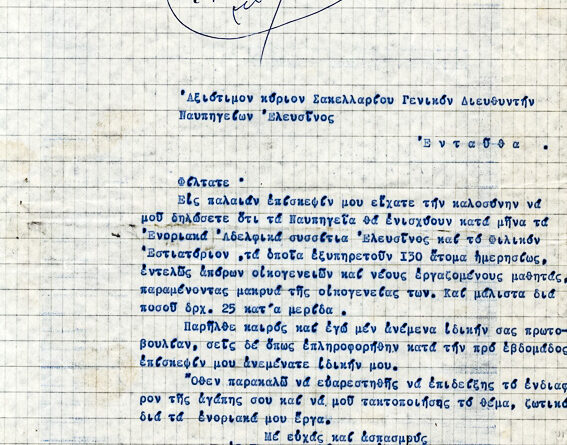 Ἀξιότιμον κύριον Σακελλαρίου Γενικόν Διευθυντήν
Ναυπηγείων Ἐλευσῖνος
Ἐ ν τ α ῦ θ α .
Φίλτατε ·
Εἰς παλαιάν ἐπίσκεψίν μου εἴχατε τήν καλοσύνην νά
μοῦ δηλώσετε ὅτι τά Ναυπηγεῖα θά ἐνισχύουν κατά μῆνα τά
Ἐνοριακά Ἀδελφικά συσσίτια Ἐλευσῖνος καί τό Φιλικόν
Ἑστιατόριον ,τά ὁποῖα ἐξυπηρετοῦν 130 ἄτομα ἡμερησίως,
ἐντελῶς ἀπόρων οἰκογενειῶν καί νέους ἐργαζομένους μαθητάς,
παραμένοντας μακρυά τῆς οἰκογενείας των. Καί μάλιστα διά
ποσοῦ δρχ. 25 κατ'α μερίδα .
Παρῆλθε καιρός καί ἐγώ μέν ἀνέμενα ἰδικήν σας πρωτο-
βουλίαν, σεῖς δέ ὅπως ἐπληροφορήθην κατά τήν πρό ἑβδομάδος
ἐπίσκεψίν μου ἀνεμένατε ἰδικήν μου.
Ὅθεν παρακαλῶ νά εὐαρεστηθῆς νά ἐπιδείξης τό ἐνδιαφ
ρον τῆς ἀγάπης σου καί νά μοῦ τακτοποιήσης τό θέμα, ζωτικό
διά τά ἐνοριακά μου ἔργα.
Μέ εὐχάς καί ἀσπασμούς